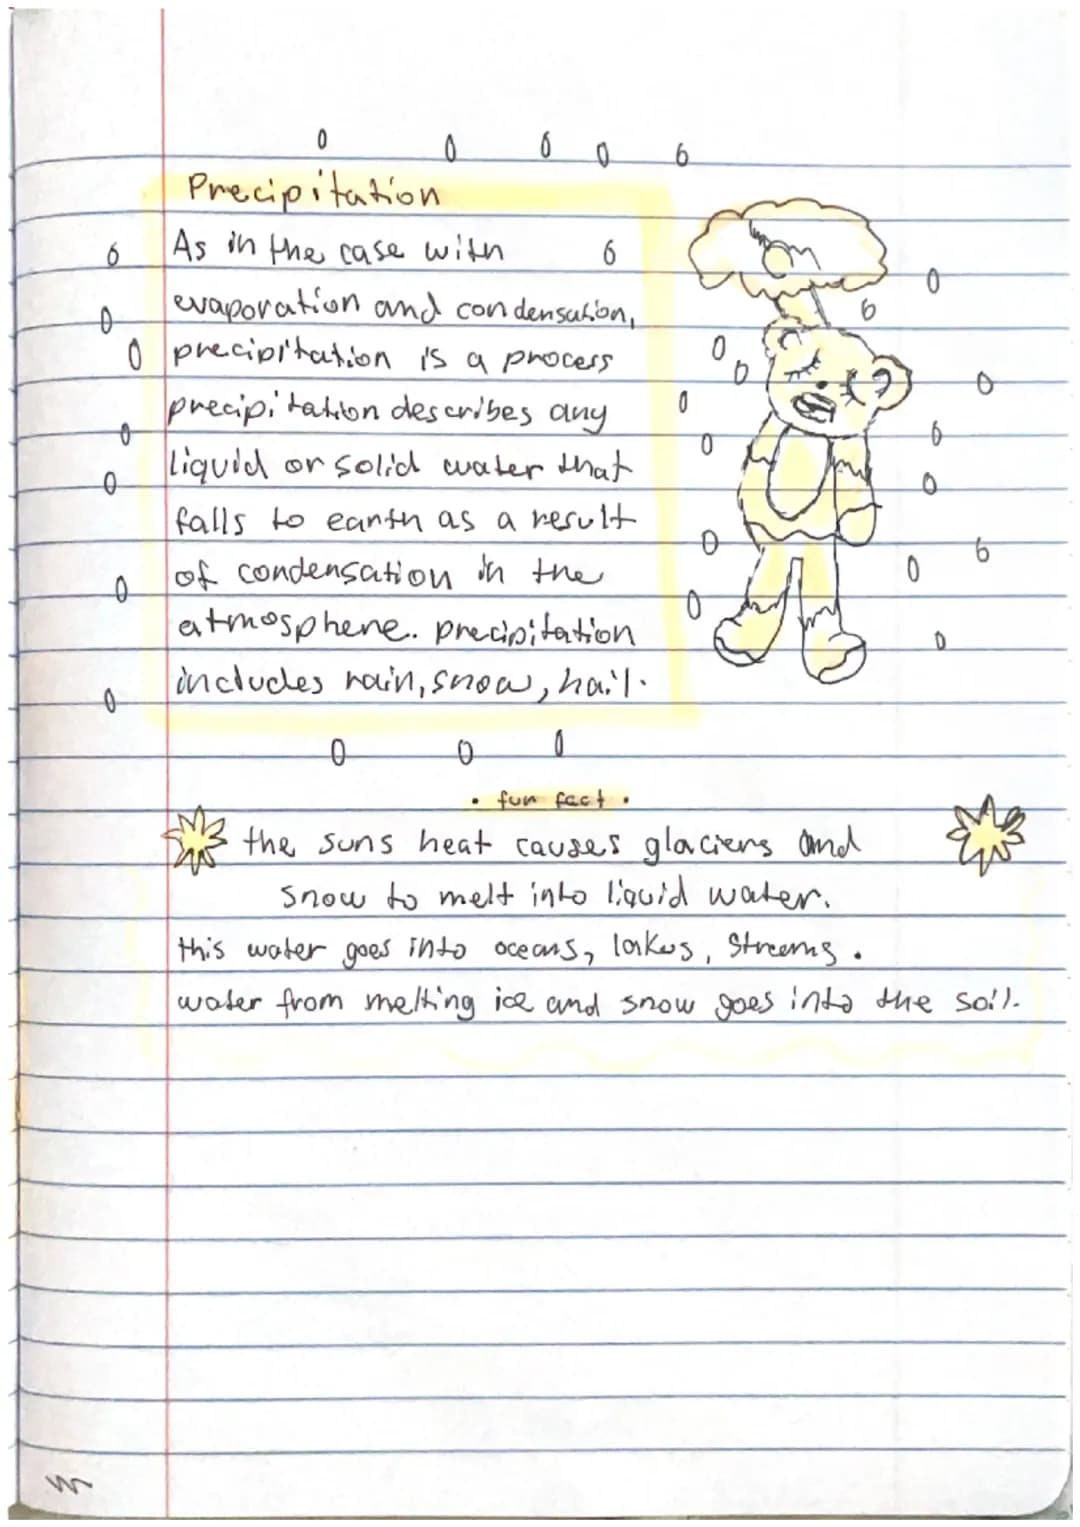 Precipitation
As in the case with
evaporation and condensation,
precipitation is a process
precipitation describes any
liquid or solid water that
falls to earth as a result
of condensation in the
atmosphere. precipitation
includes rain, snow, hail.
• fun fact •
the suns heat causes glaciers and
snow to melt into liquid water.
this water goes into oceans, lakes, streems.
water from melting ice and snow goes into the soil.